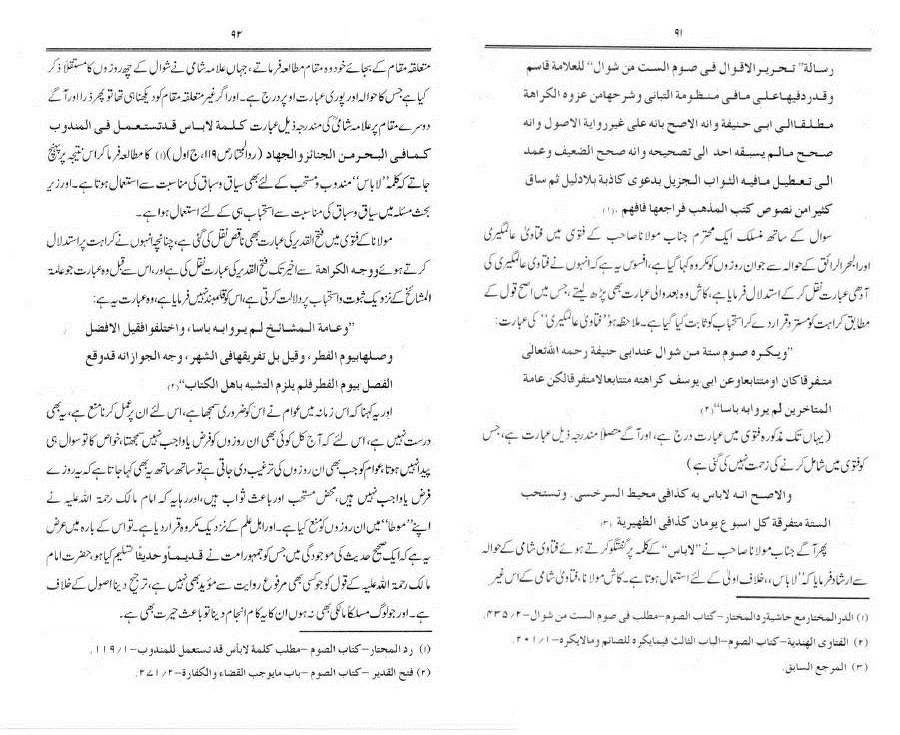 ۹۱
رسالة "تحرير الاقوال فى صوم الست من شوال" للعلامة قاسم
وقدرد فيها على مافى منظومة التبانى وشرحها من عزوه الكراهة
مطلقاً الى ابى حنيفة وانه الاصح بانه على غير رواية الاصول وانه
صحح مالم يسبقه احد الى تصحيحه وانه صحح الضعيف وعمد
الى تعطيل مافيه الثواب الجزيل بدعوى كاذبة بلادليل ثم ساق
كثيرا من نصوص كتب المذهب فراجعها فافهم. (۱)
سوال کے ساتھ منسلک ایک محترم جناب مولانا صاحب کے فتوی میں فتاوی عالمگیری
اور البحر الرائق کے حوالہ سے جو ان روزوں کو مکروہ کہا گیا ہے، افسوس یہ ہے کہ انہوں نے فتاوی عالمگیری کی
آدھی عبارت نقل کر کے استدلال فرمایا ہے، کاش وہ بعد والی عبارت بھی پڑھ لیتے، جس میں اصح قول کے
مطابق کراہت کو مسترد قرار دے کر استحباب کو ثابت کیا گیا ہے۔ ملاحظہ ہو "فتاویٰ عالمگیری" کی عبارت:
"ويكره صوم ستة من شوال عند ابى حنيفة رحمه الله تعالىٰ
متفرقا كان اومتتابعا وعن ابى يوسف كراهته متتابعا لامتفرقا لكن عامة
المتاخرين لم يروا به باسا" (۲)
(یہاں تک مذکورہ فتوی میں عبارت درج ہے، اور آگے متصلا مندرجہ ذیل عبارت ہے، جس
کو فتوی میں شامل کرنے کی زحمت نہیں کی گئی ہے)
والاصح انه لاباس به كذا فى محيط السرخسى. وتستحب
الستة متفرقة كل اسبوع يومان كذا فى الظهيرية (۳)
پھر آگے جناب مولانا صاحب نے "لاباس" کے کلمہ پر گفتگو کرتے ہوئے فتاوی شامی کے حوالہ
سے ارشاد فرمایا کہ "لاباس،، خلاف اولی کے لئے استعمال ہوتا ہے۔ کاش مولانا، فتاوی شامی کے اس غیر
(۱) الدر المختار مع حاشية رد المختار–كتاب الصوم–مطلب فى صوم الست من شوال–۲/۴۳۵.
(۲) الفتاوى الهندية–كتاب الصوم–الباب الثالث فيما يكره للصائم ومالا يكره–۱/۲۰۱.
(۳) المرجع السابق.
۹۲
متعلقہ مقام کے بجائے خود وہ مقام مطالعہ فرماتے، جہاں علامہ شامی نے شوال کے چھ روزوں کا مستقلاً ذکر
کیا ہے جس کا حوالہ اور پوری عبارت اوپر درج ہے۔ اور اگر غیر متعلقہ مقام کو دیکھنا ہی تھا تو پھر ذرا اور آگے
دوسرے مقام پر علامہ شامیؒ کی مندرجہ ذیل عبارت كلمة لاباس قد تستعمل فى المندوب
كما فى البحر من الجنائز والجهاد (ردالمختار ص ۱۱۹، ج اول) (۱) کا مطالعہ فرما کر اس نتیجہ پر پہنچ
جاتے کہ کلمہ "لاباس" مندوب و مستحب کے لئے بھی سیاق و سباق کی مناسبت سے استعمال ہوتا ہے۔ اور زیر
بحث مسئلہ میں سیاق و سباق کی مناسبت سے استحباب ہی کے لئے استعمال ہوا ہے۔
مولانا کے فتوی میں فتح القدیر کی عبارت بھی ناقص نقل کی گئی ہے، چنانچہ انہوں نے کراہت پر استدلال
کرتے ہوئے ووجه الكراهة سے اخیر تک فتح القدیر کی عبارت نقل کی ہے اور، اس سے قبل وہ عبارت جو عامۃ
المشائخ کے نزدیک ثبوت و استحباب پر دلالت کرتی ہے، اس کو قلمبند نہیں فرمایا ہے، وہ عبارت یہ ہے:
"وعامة المشائخ لم يروا به باسا، واختلفوا فقيل الافضل
وصلها بيوم الفطر، وقيل بل تفريقها فى الشهر، وجه الجواز انه قدوقع
الفصل بيوم الفطر فلم يلزم التشبه باهل الكتاب" (۲)
اور یہ کہنا کہ اس زمانہ میں عوام نے اس کو ضروری سمجھا ہے، اس لئے ان پر عمل کرنا منع ہے، یہ بھی
درست نہیں ہے، اس لئے کہ آج کل کوئی بھی ان روزوں کو فرض یا واجب نہیں سمجھتا، خواص کا تو سوال ہی
پیدا نہیں ہوتا، عوام کو جب بھی ان روزوں کی ترغیب دی جاتی ہے تو ساتھ ساتھ یہ بھی کہا جاتا ہے کہ یہ روزے
فرض یا واجب نہیں ہیں، محض مستحب اور باعث ثواب ہیں، اور رہا یہ کہ امام مالک رحمۃ اللہ علیہ نے
اپنے "موطا" میں ان روزوں کو منع کیا ہے۔ اور اہل علم کے نزدیک مکروہ قرار دیا ہے۔ تو اس کے بارہ میں عرض
یہ ہے کہ ایک صحیح حدیث کی موجودگی میں جس کو جمہور امت نے قديماً وحديثاً تسلیم کیا ہو، حضرت امام
مالک رحمۃ اللہ علیہ کے قول کو جو کسی بھی مرفوع روایت سے مؤید بھی نہیں ہے، ترجیح دینا اصول کے خلاف
ہے۔ اور جو لوگ مسلکاً مالکی بھی نہ ہوں ان کا یہ کام انجام دینا تو باعث حیرت بھی ہے۔
(۱) رد المختار–كتاب الصوم–مطلب كلمة لابأس قد تستعمل للمندوب–۱/۱۱۹.
(۲) فتح القدير–كتاب الصوم–باب مايوجب القضاء والكفارة–۲/۲۷۱.